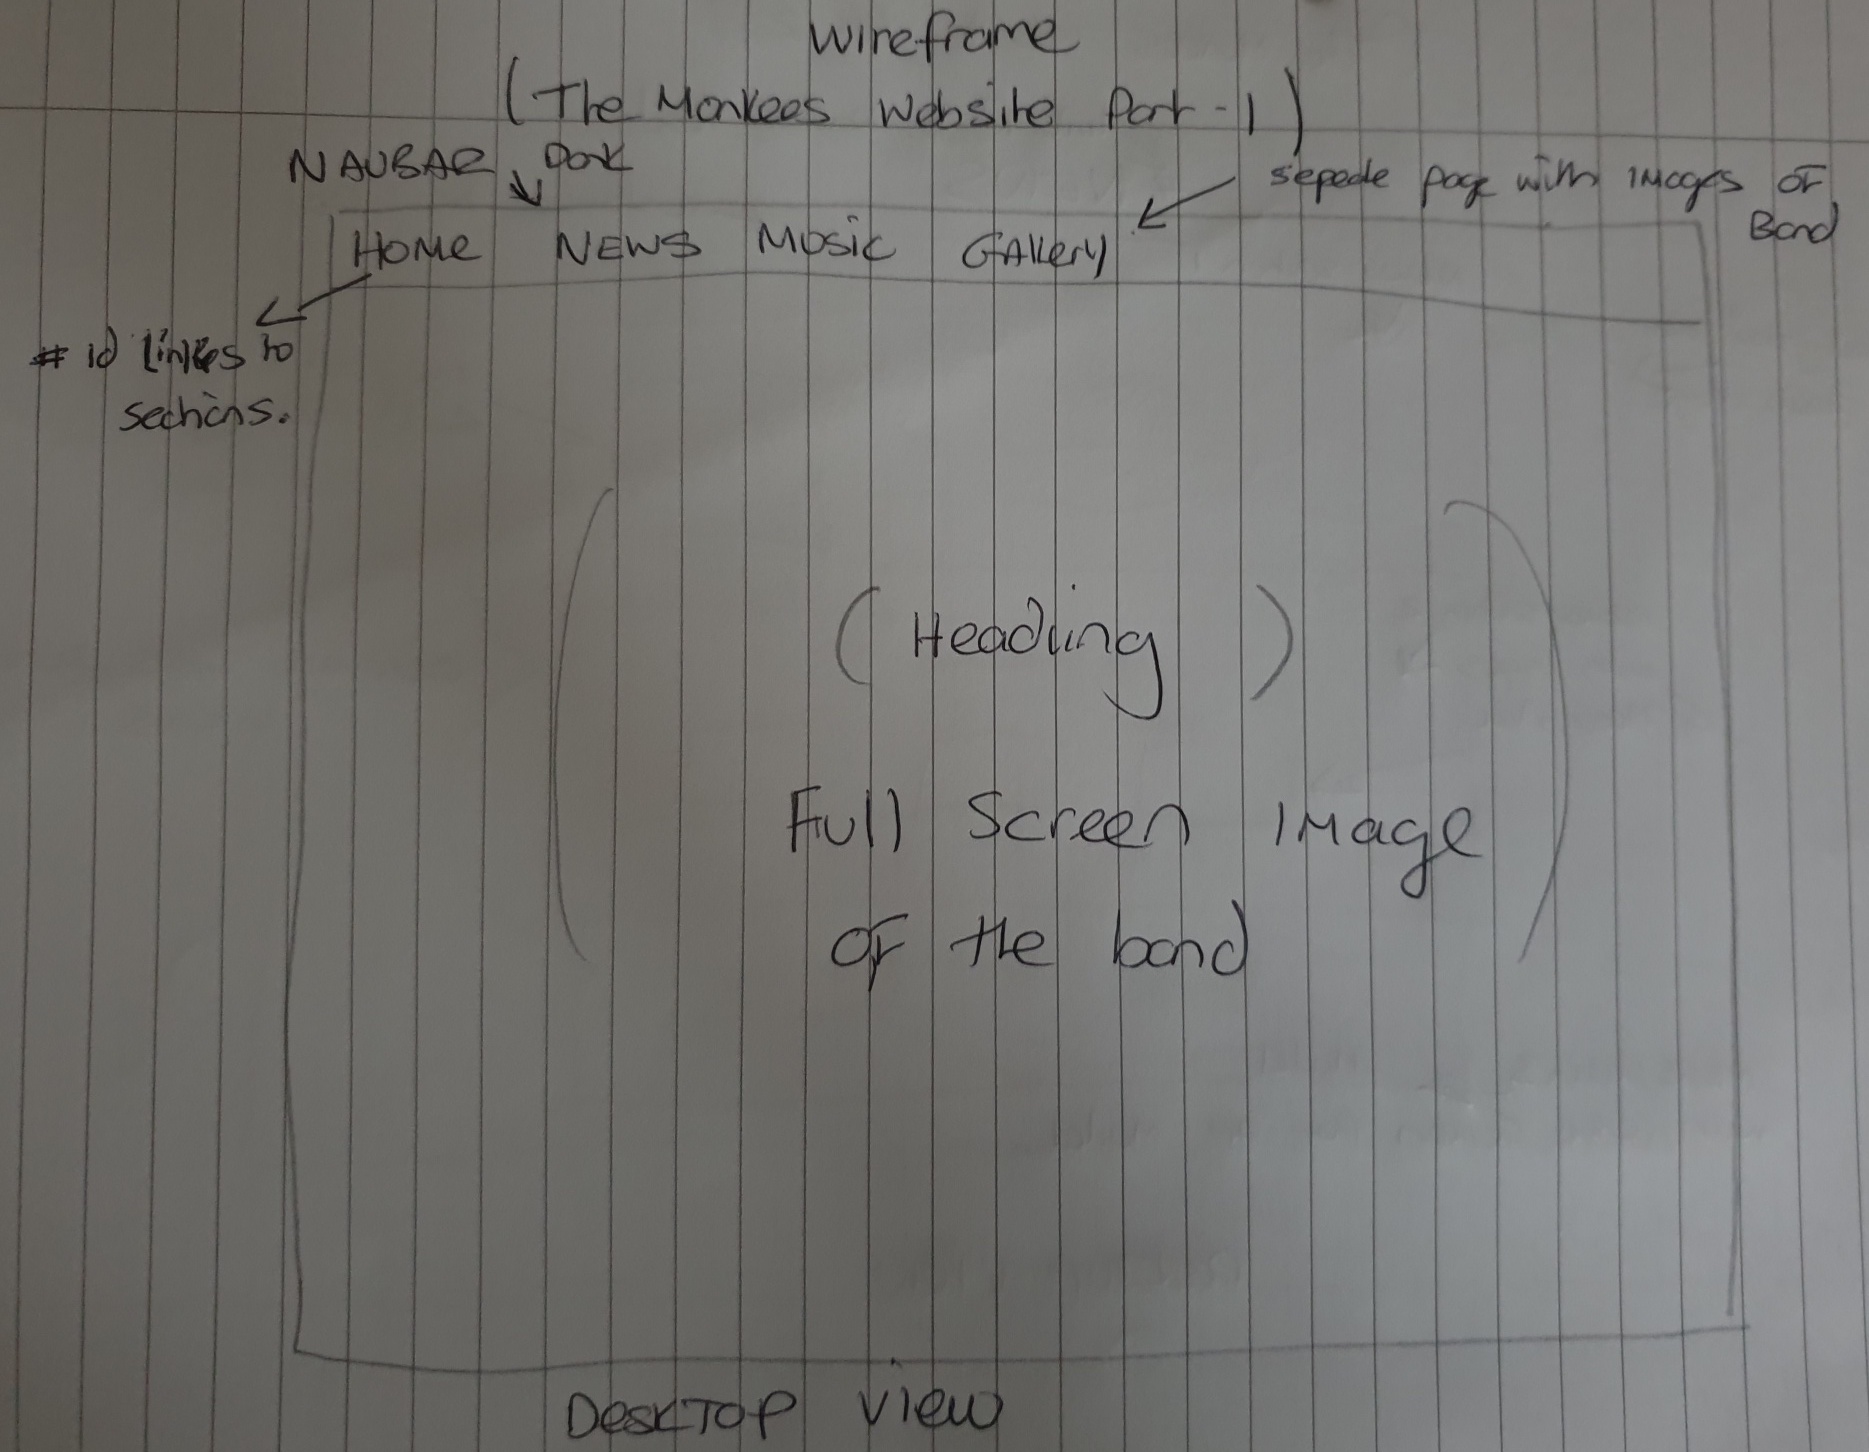 Wireframe
(The Monkees Website Part - 1)
NAVBAR Dark
sepedle page with images of
Band
HOME NEWS MUSIC GAllery
# id links to
sections.
(Heading)
Full Screen Image
OF the band
DESKTOP View